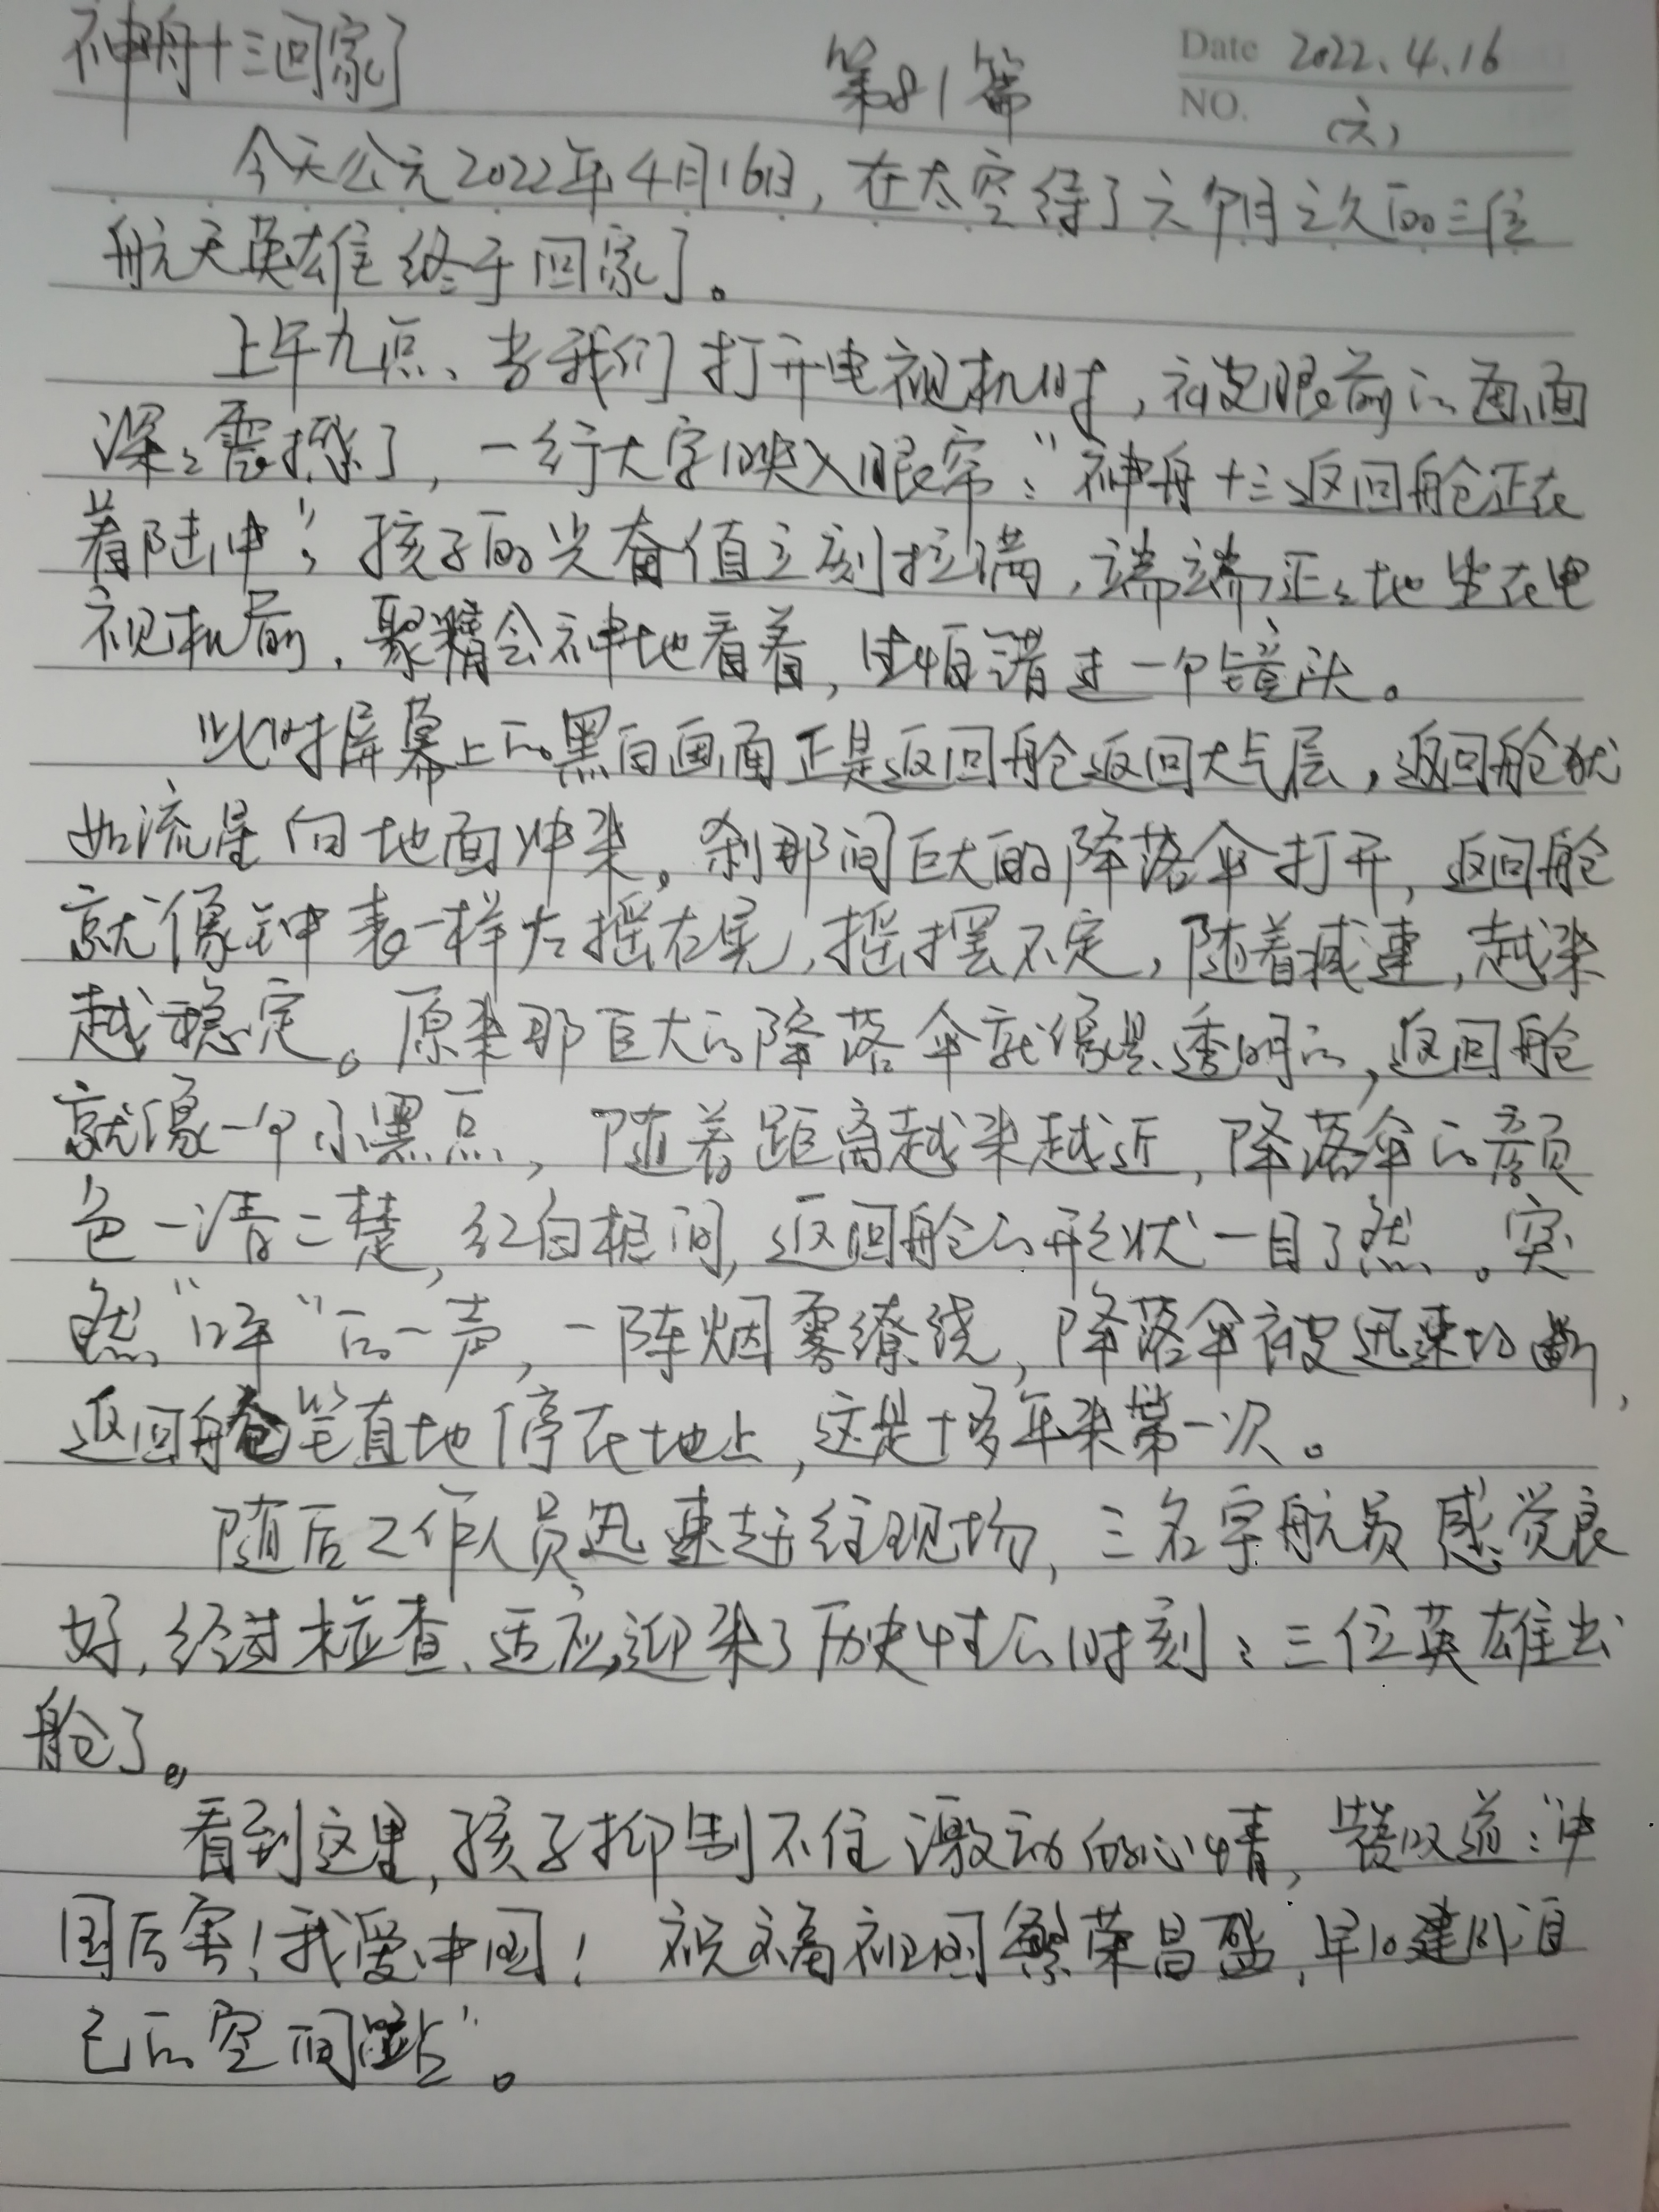 神舟十三回家了
第81篇
Date 2022.4.16
NO. (六)
今天公元2022年4月16日,在太空待了六个月之久的三位
航天英雄终于回家了。
上午九点、当我们打开电视机时,被眼前的画面
深深震撼了,一行大字映入眼帘:“神舟十三返回舱正在
着陆中”,孩子的兴奋值立刻拉满,端端正正地坐在电
视机前,聚精会神地看着,生怕错过一个镜头。
此时屏幕上的黑白画面正是返回舱返回大气层,返回舱犹
如流星向地面冲来。刹那间巨大的降落伞打开,返回舱
就像钟表一样左摇右晃,摇摆不定,随着减速,越来
越稳定。原来那巨大的降落伞就像是透明的,返回舱
就像一个小黑点,随着距离越来越近,降落伞的颜
色一清二楚,红白相间,返回舱的形状一目了然。突
然“呯”的一声,一阵烟雾缭绕,降落伞被迅速切断,
返回舱笔直地停在地上,这是十多年来第一次。
随后工作人员迅速赶往现场,三名宇航员感觉良
好,经过检查、适应,迎来了历史性的时刻:三位英雄出
舱了。
看到这里,孩子抑制不住激动的心情,赞叹道:“中
国厉害!我爱中国!祝福祖国繁荣昌盛,早日建成自
己的空间站”。